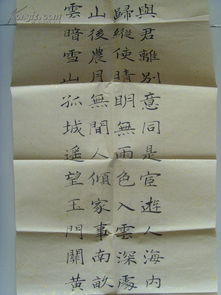 與君離別意同是宦遊人海內
歸縱使晴明無雨色入雲深處
山後農月無間人傾家事南畝
雲暗雪山孤城遙望玉門關黃